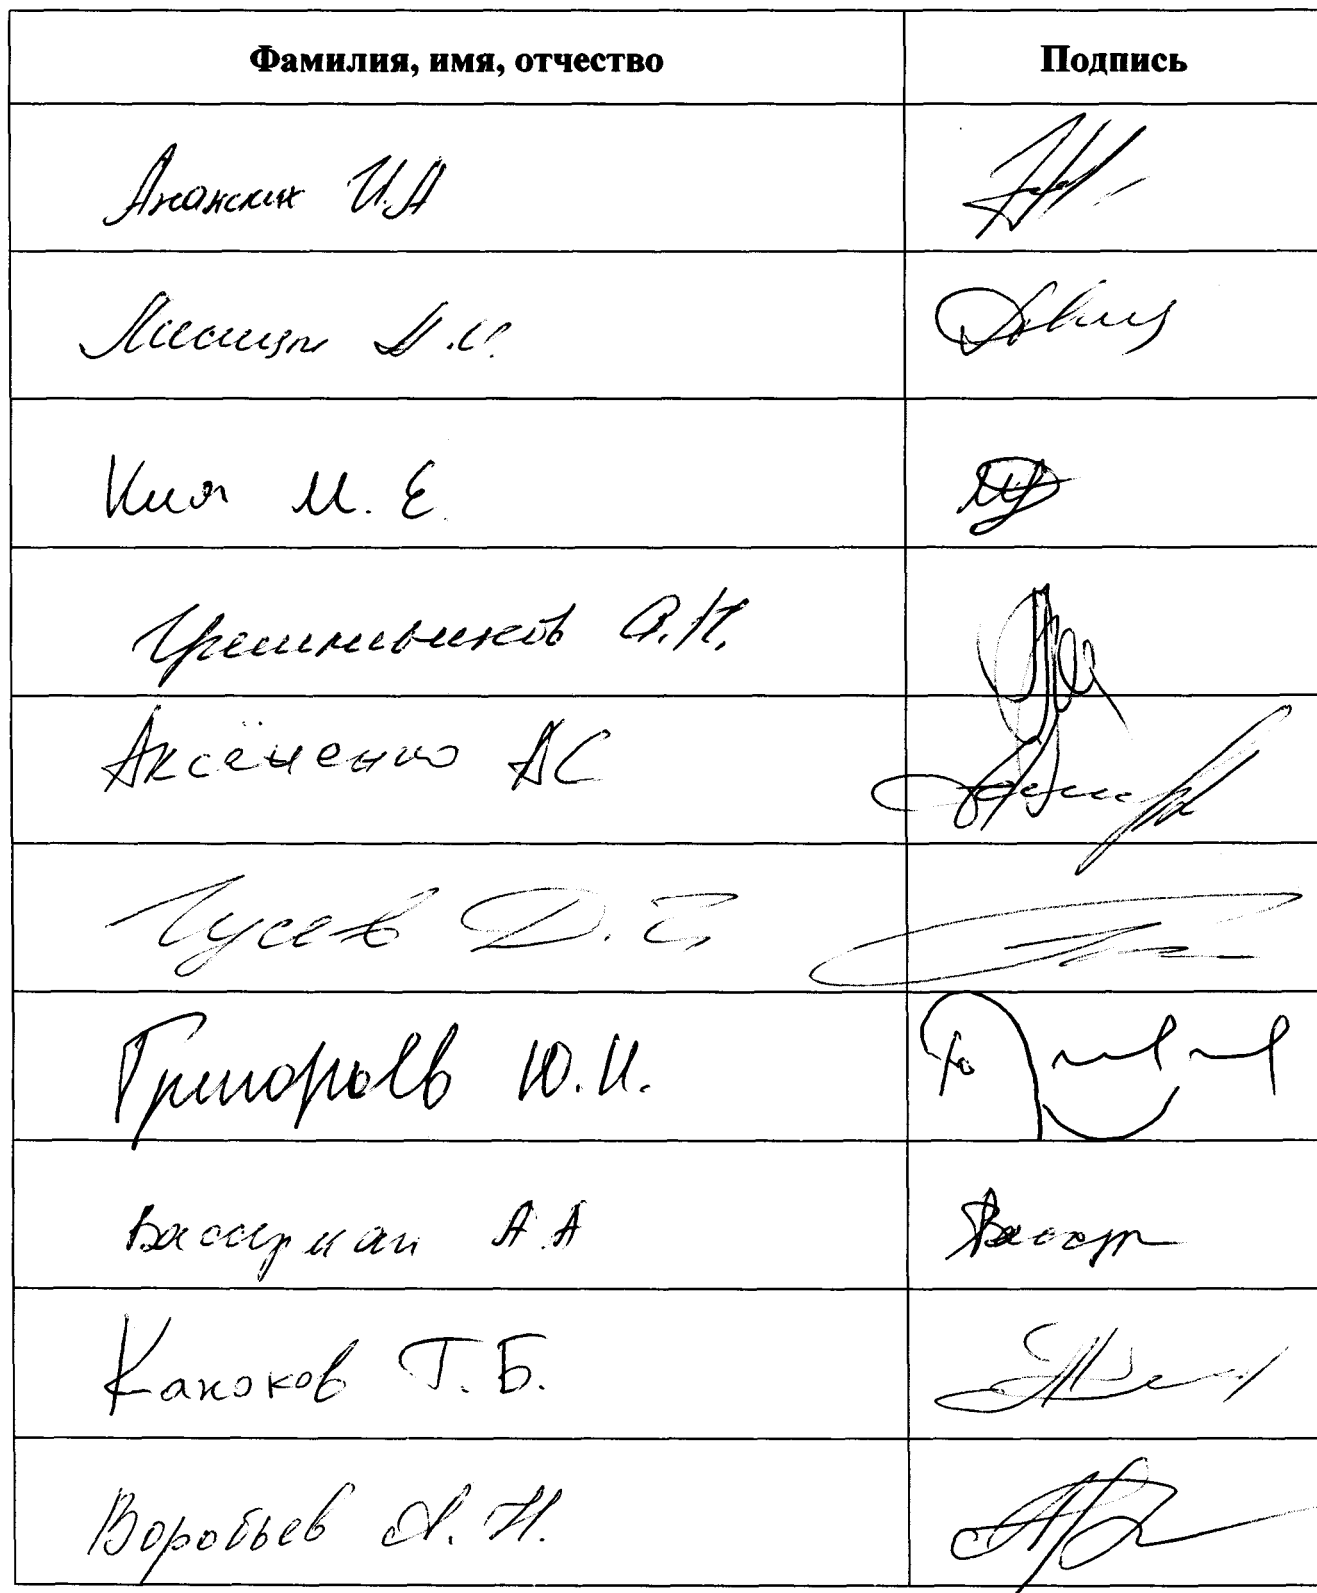 Фамилия, имя, отчество Подпись
Ананских И.А
Лисицын А.И.
Ким М. Е.
Грешневиков А.Н.
Аксёненко АС
Гусев Д.Г.
Григорьев Ю.И.
Вассерман А.А
Каноков Т.Б.
Воробьев А.Н.